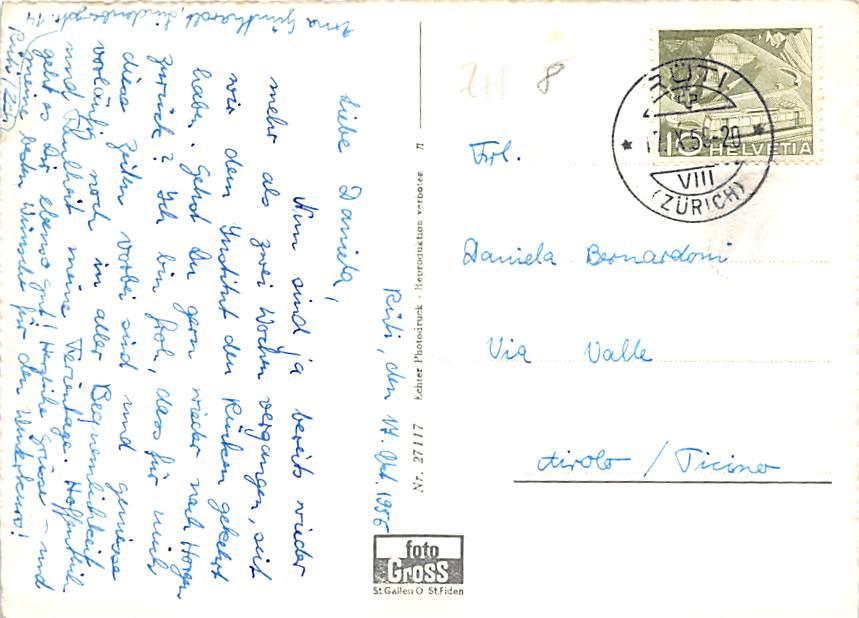 Rüti, den 17. Okt. 1956
Liebe Daniela,
Nun sind ja bereits wieder
mehr als zwei Wochen vergangen, seit
wir dem Institut den Rücken gekehrt
haben. Gehst Du gern wieder nach Horgen
zurück? Ich bin froh, dass für mich
diese Zeiten vorbei sind und geniesse
vorläufig noch in aller Bequemlichkeit
und Faulheit meine Ferientage. Hoffentlich
geht es Dir ebenso gut! Herzliche Grüsse – und
meine besten Wünsche für den Winterkurs!
Rüti (Zch)
Nr. 27117 Echter Photodruck - Reproduktion verboten
foto
Gross
St. Gallen O St. Fiden
ZH 8
RÜTI
17.X.56-20
VIII
(ZÜRICH)
10 HELVETIA
Frl.
Daniela Bernardoni
Via Valle
Airolo / Ticino